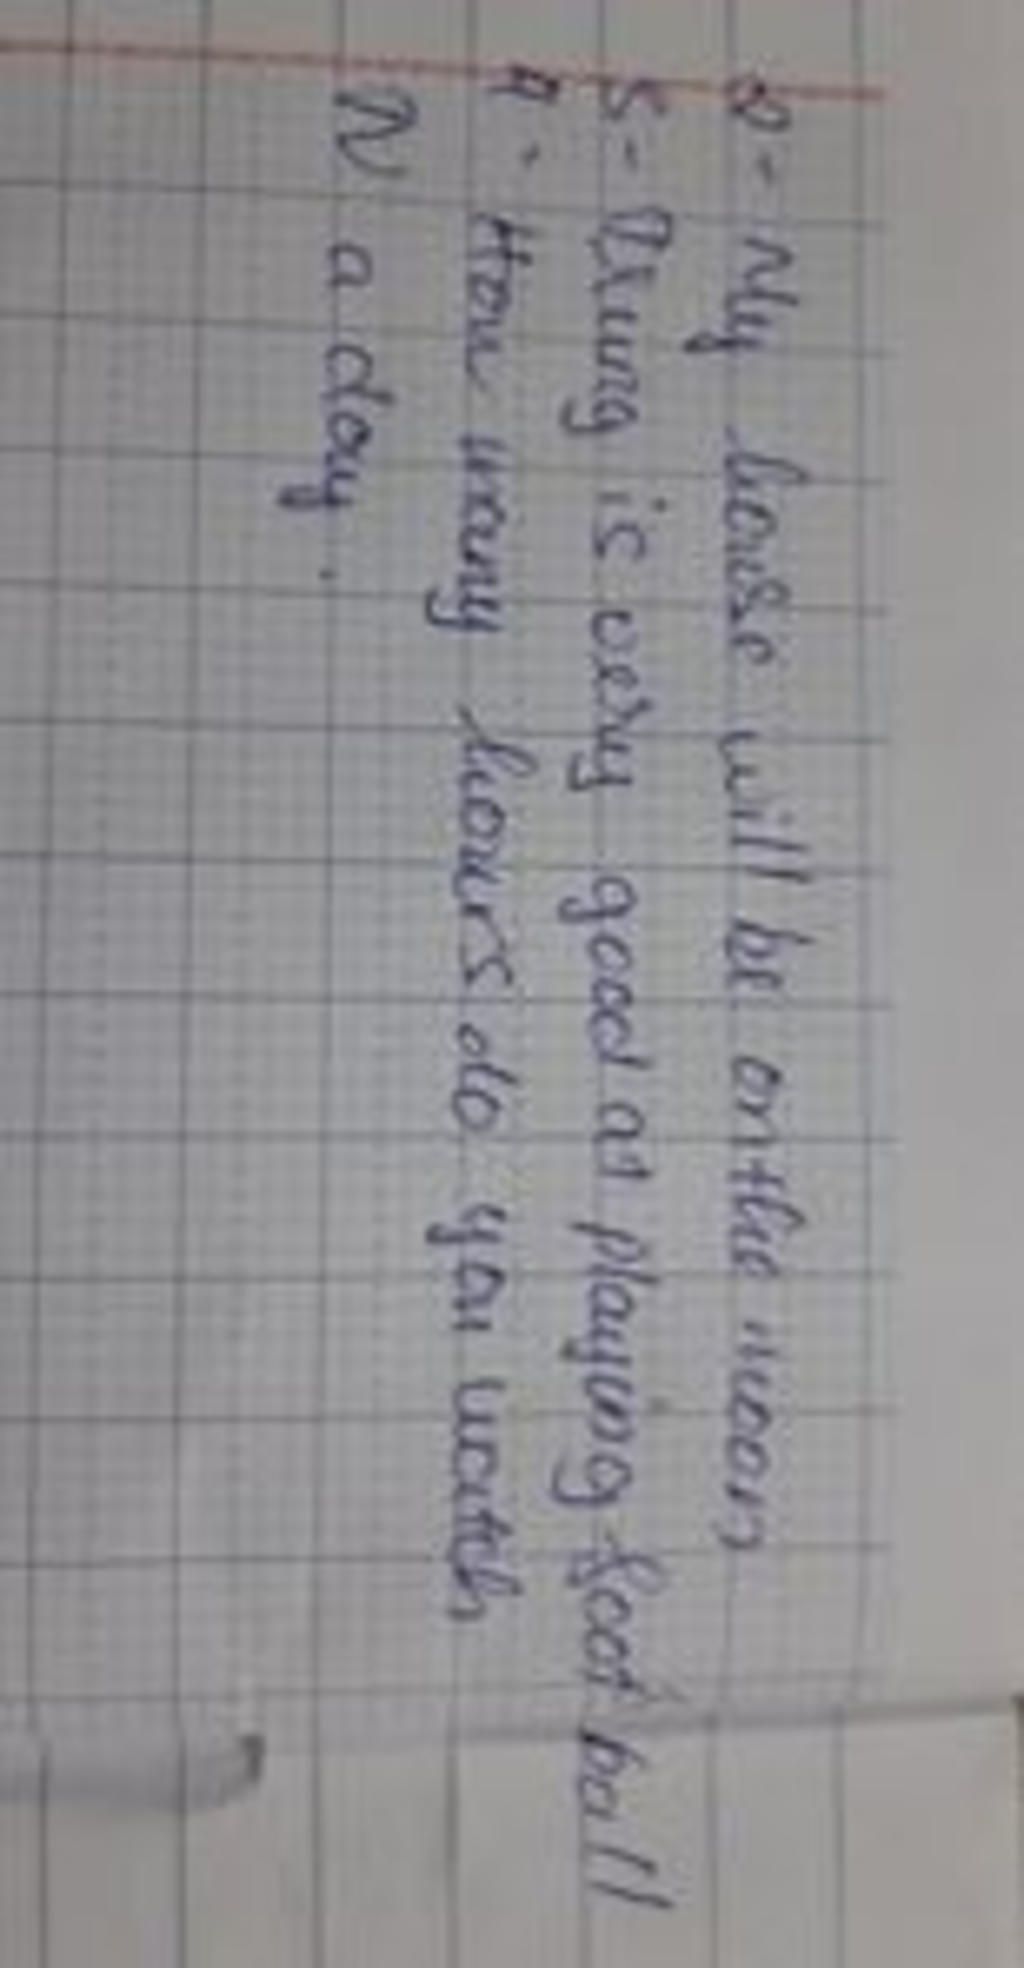 - My house will be on the moon
5- Dũng is very good at playing foot ball
4. How many hours do you watch
TV a day.